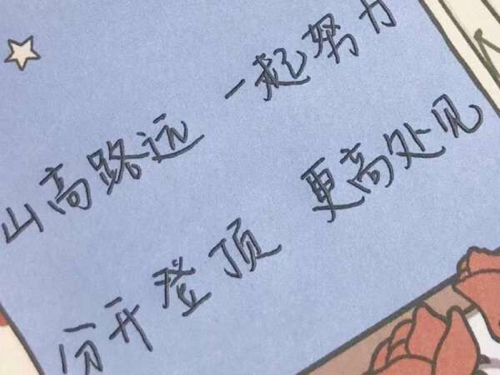 山高路远 一起努力
分开登顶 更高处见